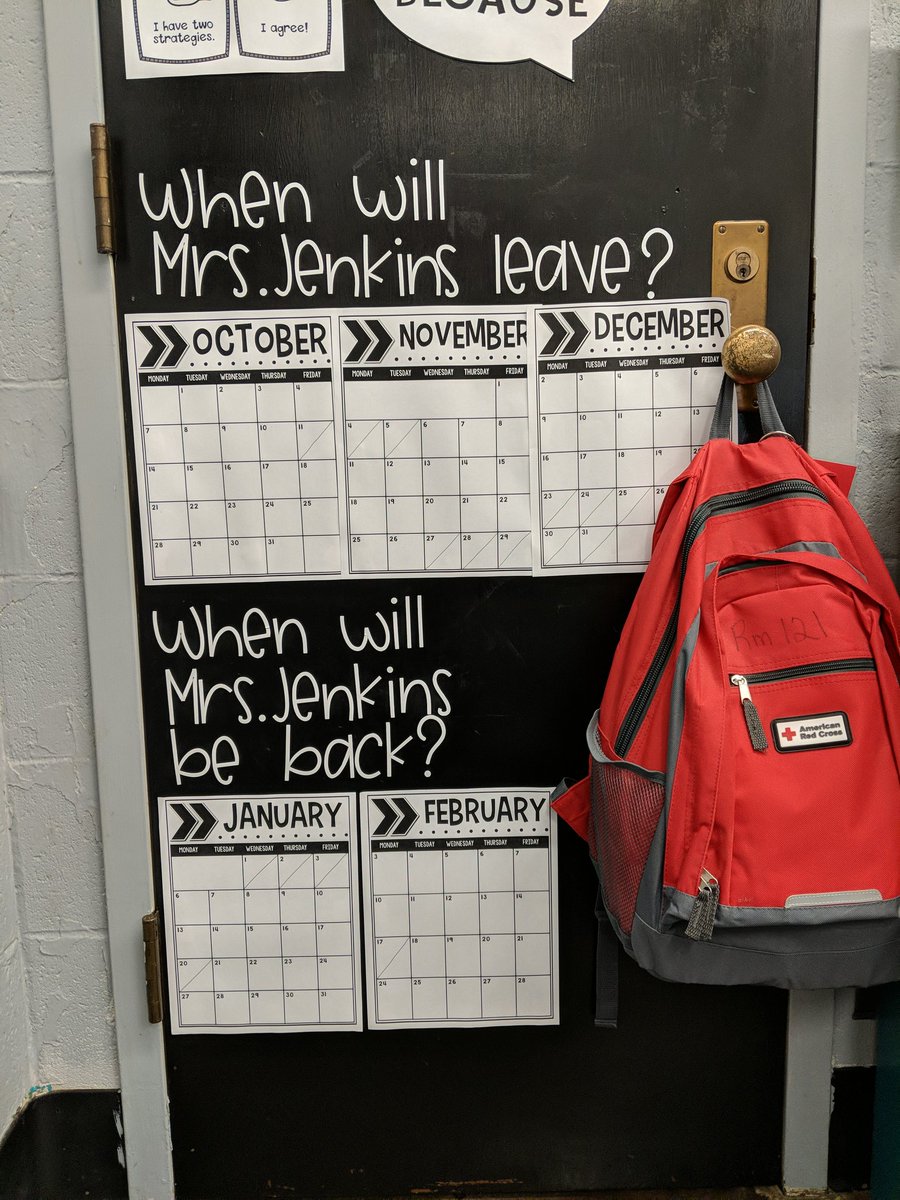 I have two
strategies.
I agree!
BECAUSE
When will
Mrs. Jenkins leave?
OCTOBER
MONDAY TUESDAY WEDNESDAY THURSDAY FRIDAY
1 2 3 4
7 8 9 10 11
14 15 16 17 18
21 22 23 24 25
28 29 30 31
NOVEMBER
MONDAY TUESDAY WEDNESDAY THURSDAY FRIDAY
1
4 5 6 7 8
11 12 13 14 15
18 19 20 21 22
25 26 27 28 29
DECEMBER
MONDAY TUESDAY WEDNESDAY THURSDAY FRIDAY
2 3 4 5 6
9 10 11 12 13
16 17 18 19
23 24 25 26
30 31
When will
Mrs. Jenkins
be back?
JANUARY
MONDAY TUESDAY WEDNESDAY THURSDAY FRIDAY
1 2 3
6 7 8 9 10
13 14 15 16 17
20 21 22 23 24
27 28 29 30 31
FEBRUARY
MONDAY TUESDAY WEDNESDAY THURSDAY FRIDAY
3 4 5 6 7
10 11 12 13 14
17 18 19 20 21
24 25 26 27 28
Rm 121
American
Red Cross